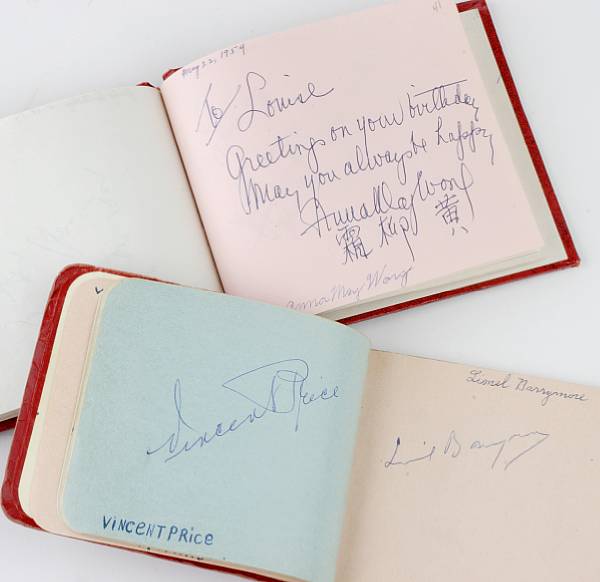 41
May 22, 1954
To Louise
Greetings on your birthday
May you always be happy
Anna May Wong
霜 柳 黃
Anna May Wong
Vincent Price
VINCENT PRICE
Lionel Barrymore
Lionel Barrymore